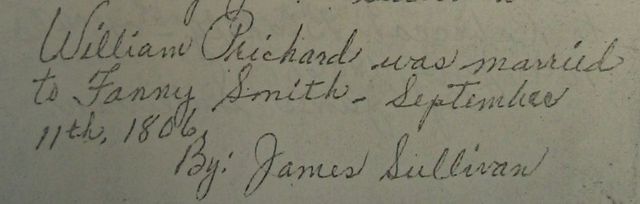 William Prichard was married
to Fanny Smith - September
11th, 1806,
By: James Sullivan